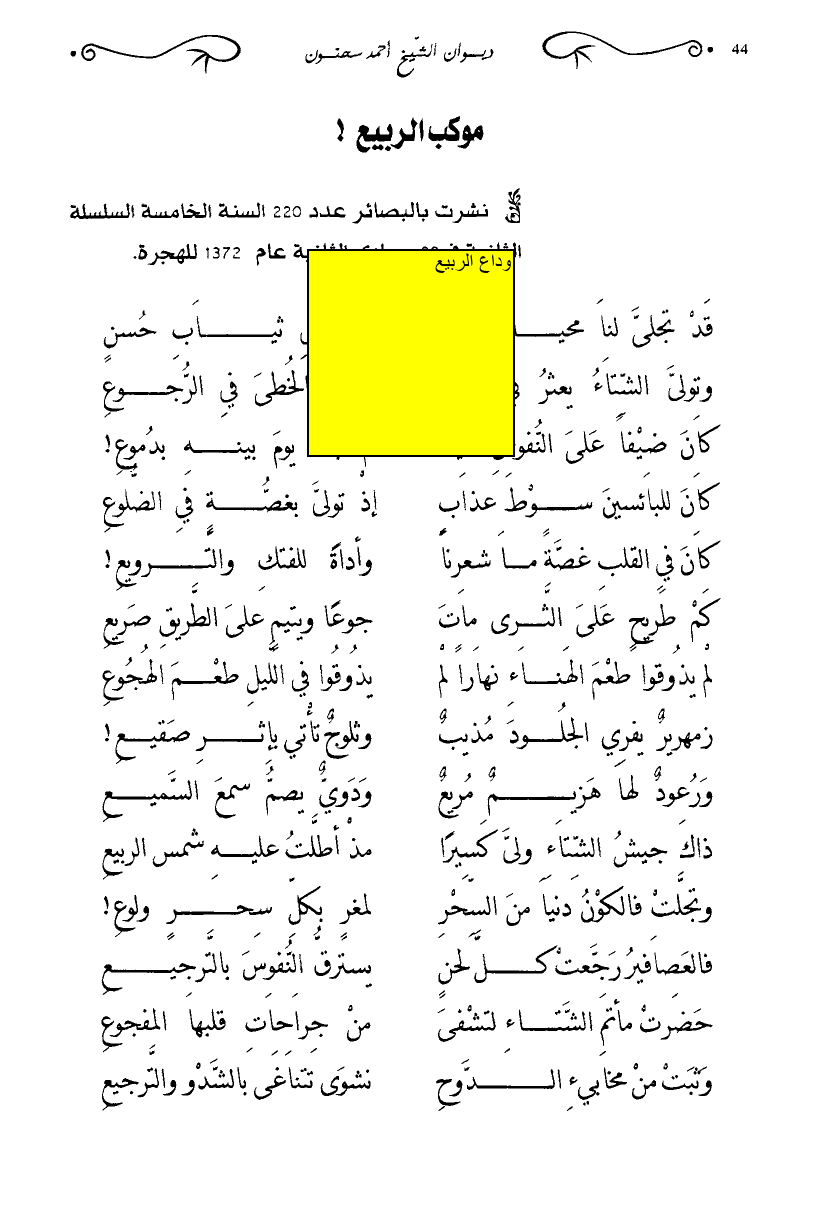 44
ديوان الشّيخ أحمد سحنون
موكب الربيع !
نشرت بالبصائر عدد 220 السنة الخامسة السلسلة
عام 1372 للهجرة.
وداع الربيع
قَدْ تجلىَّ لناَ ثيابِ حُسنٍ
وتولىَّ الشّتاءُ يعثرُ الخُطىَ في الرُّجوعِ
كانَ ضيْفاً علىَ النُّفوسِ يومَ بينه بدُموعِ!
كانَ للبائسينَ سوْطَ عذابٍ إذْ تولىَّ بغصَّةٍ في الضّلوعِ
كانَ في القلبِ غصَّةٍ ما شعرنا وأداةً للفتكِ والتّرويعِ!
كمْ طريحٍ علىَ الثَّرى ماتَ جوعًا ويتيمٍ علىَ الطّريقِ صَريعِ
لمْ يذوقوا طعْمَ الهناءِ نهاراً لمْ يذوقُوا في اللّيلِ طعْمَ الهُجُوعِ
زمهريرٌ يفري الجلُودَ مُذيبٌ وثلوجٌ تأتي بإثرِ صَقيعِ!
وَرُعودٌ لها هَزيمٌ مُريعٌ وَدَويٌّ يصمُّ سمعَ السَّميعِ
ذاكَ جيشُ الشّتاءِ ولىَّ كسيرًا مذْ أطلَّتُ عليهِ شمس الربيع
وتجلَّتْ فالكوْنُ دنياَ منَ السِّحْرِ لمغرٍ بكلِّ سحرٍ ولوعِ!
فالعَصافيرُ رَجَّعتْ كلَّ لحنٍ يسترقُّ النُّفوسَ بالتّرجيعِ
حَضرتْ مأتمَ الشَّتاءِ لتشْفىَ منْ جراحاتِ قلبها المفجوعِ
وَثبَتْ منْ مخابيءِ الدَّوحِ نشوَى تتناغَى بالشَّدْوِ والتّرجيعِ